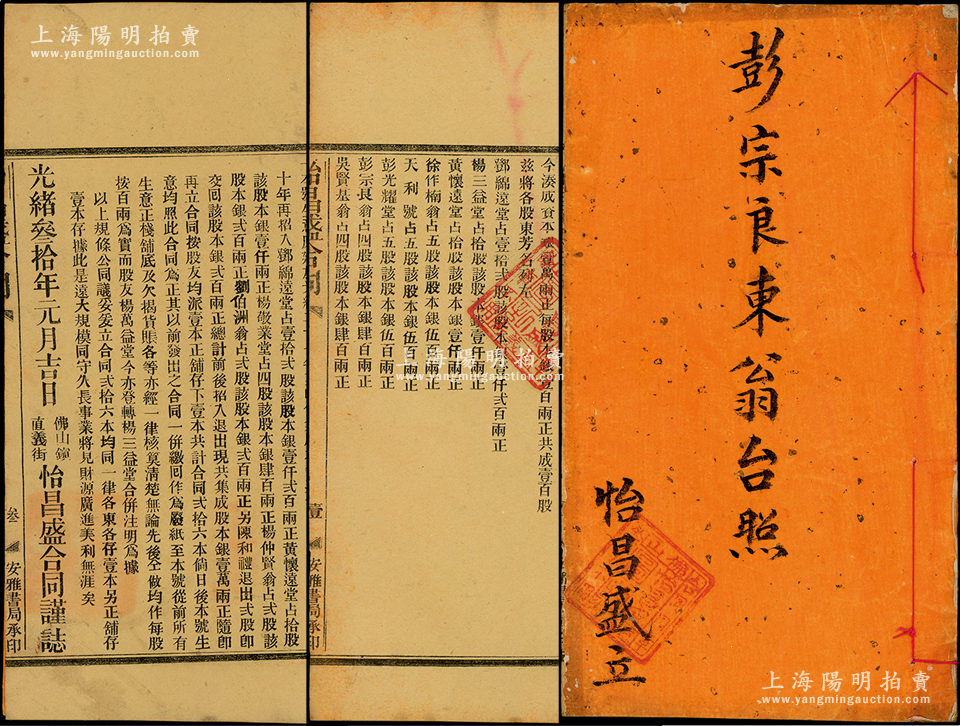 上海陽明拍賣
www.yangmingauction.com
上海陽明拍賣
www.yangmingauction.com
彭宗良東翁台照
怡昌盛立
今湊成資本銀壹萬兩正每股本銀壹百兩正共成壹百股
茲將各股東芳名列左
鄧綿遠堂占壹拾弍股該股本銀壹仟弍百兩正
楊三益堂占拾股該股本銀壹仟兩正
黃懷遠堂占拾股該股本銀壹仟兩正
徐作楠翁占五股該股本銀伍百兩正
天利號占五股該股本銀伍百兩正
彭光耀堂占五股該股本銀伍百兩正
彭宗良翁占四股該股本銀肆百兩正
吳賢基翁占四股該股本銀肆百兩正
怡昌盛合同
壹
安雅書局承印
十年再招入鄧綿遠堂占壹拾弍股該股本銀壹仟弍百兩正黃懷遠堂占拾股
該股本銀壹仟兩正楊敬業堂占四股該股本銀肆百兩正楊仲賢翁占弍股該
股本銀弍百兩正劉伯洲翁占弍股該股本銀弍百兩正另陳和禮退出弍股卽
交囘該股本銀弍百兩正總計前後招入退出現共集成股本銀壹萬兩正隨卽
再立合同按股友均派壹本正舖仔下壹本共計合同弍拾六本倘日後本號生
意均照此合同為正其以前發出之合同一併繳囘作為廢紙至本號從前所有
生意正棧舖底及欠揭貨賬各等亦經一律核算清楚無論先後仝做均作每股
按百兩為實而股友楊萬益堂今亦登轉楊三益堂合併注明為據
以上規條公同議妥爰立合同弍拾六本均同一律各東各仔壹本另正舖仔
壹本存據此是遠大規模同守久長事業將見財源廣進美利無涯矣
光緒叄拾年元月吉日
佛山鎮
直義街
怡昌盛合同謹誌
叄
安雅書局承印
上海陽明拍賣
www.yangmingauction.com
上海陽明拍賣
www.yangmingauction.com